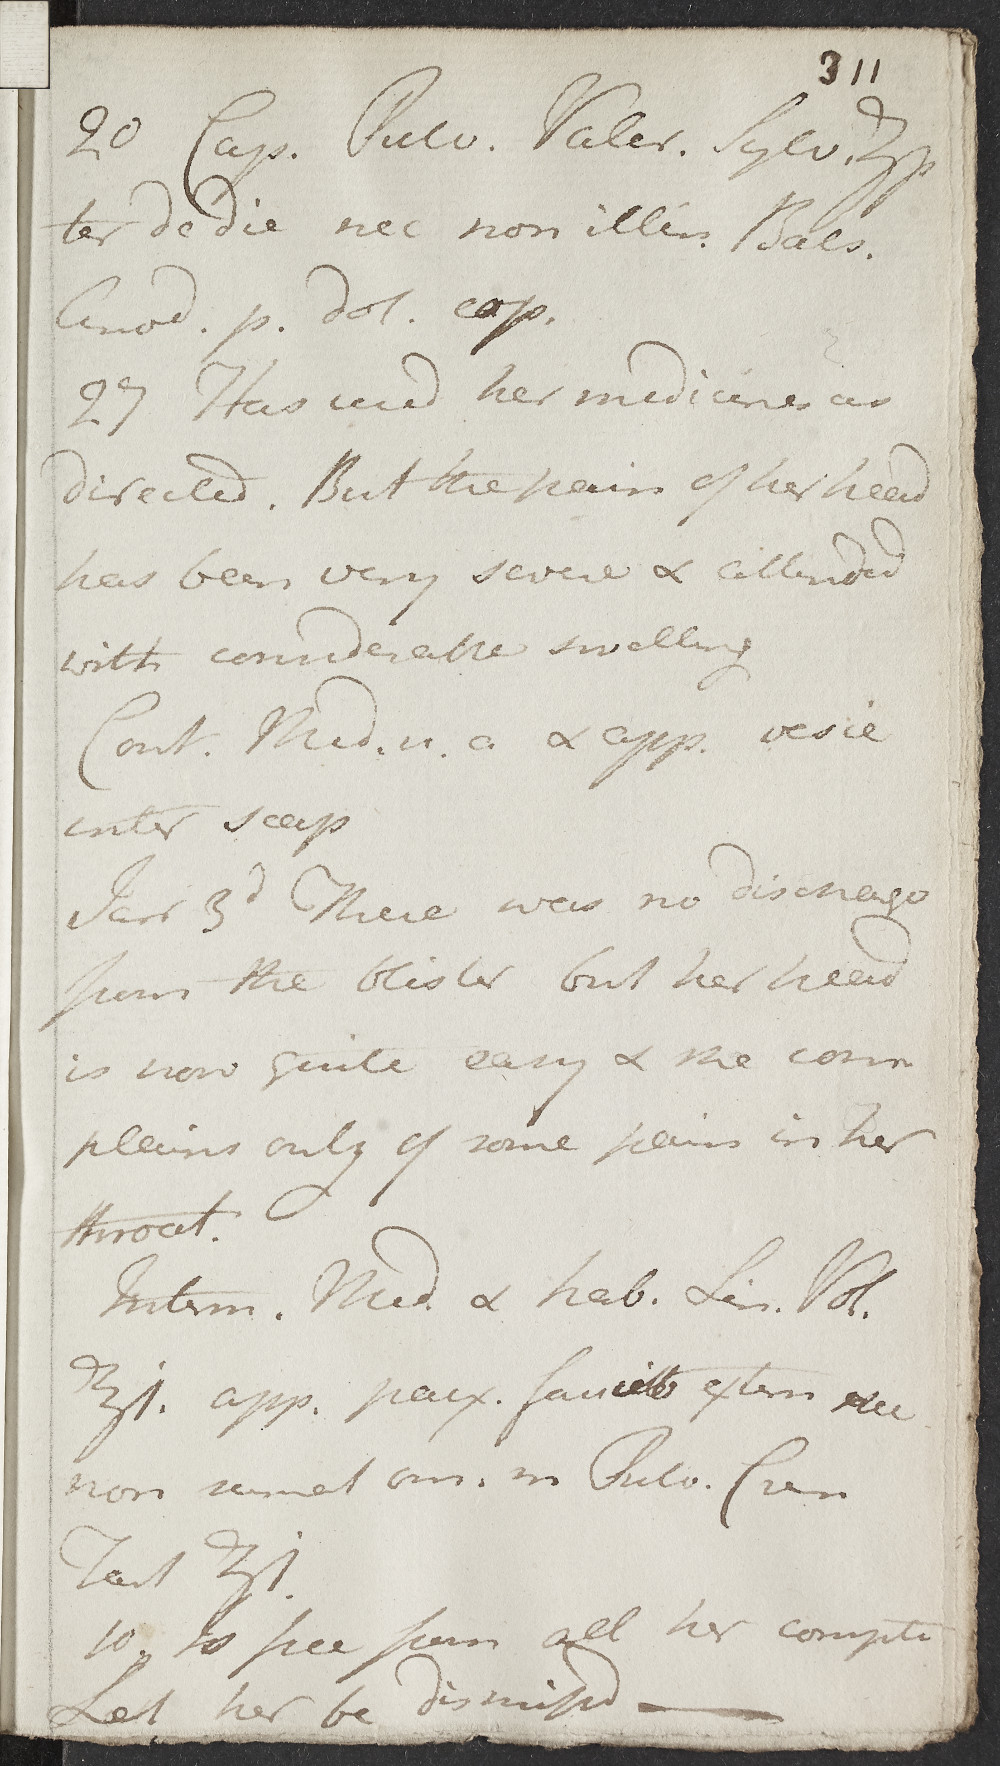 311
20 Cap. Pulv. Valer. Sylv. ʒſs
ter de die nec non illin. Bals.
Anod. p. dol. cap.
27 Has used her medicines as
directed. But the pain of her head
has been very severe & attended
with considerable swelling
Cont. Med. u. a & app. vesic
inter scap
Jan 3d There was no discharge
from the blister but her head
is now quite easy & she com
plains only of some pain in her
throat.
Interm. Med. & hab. Lin. Vol.
℥j. app. parx. faucib extern nec
non sumat om. m Pulv. Crem
Tart ʒj.
10. Is free from all her complts
Let her be dismiſsd